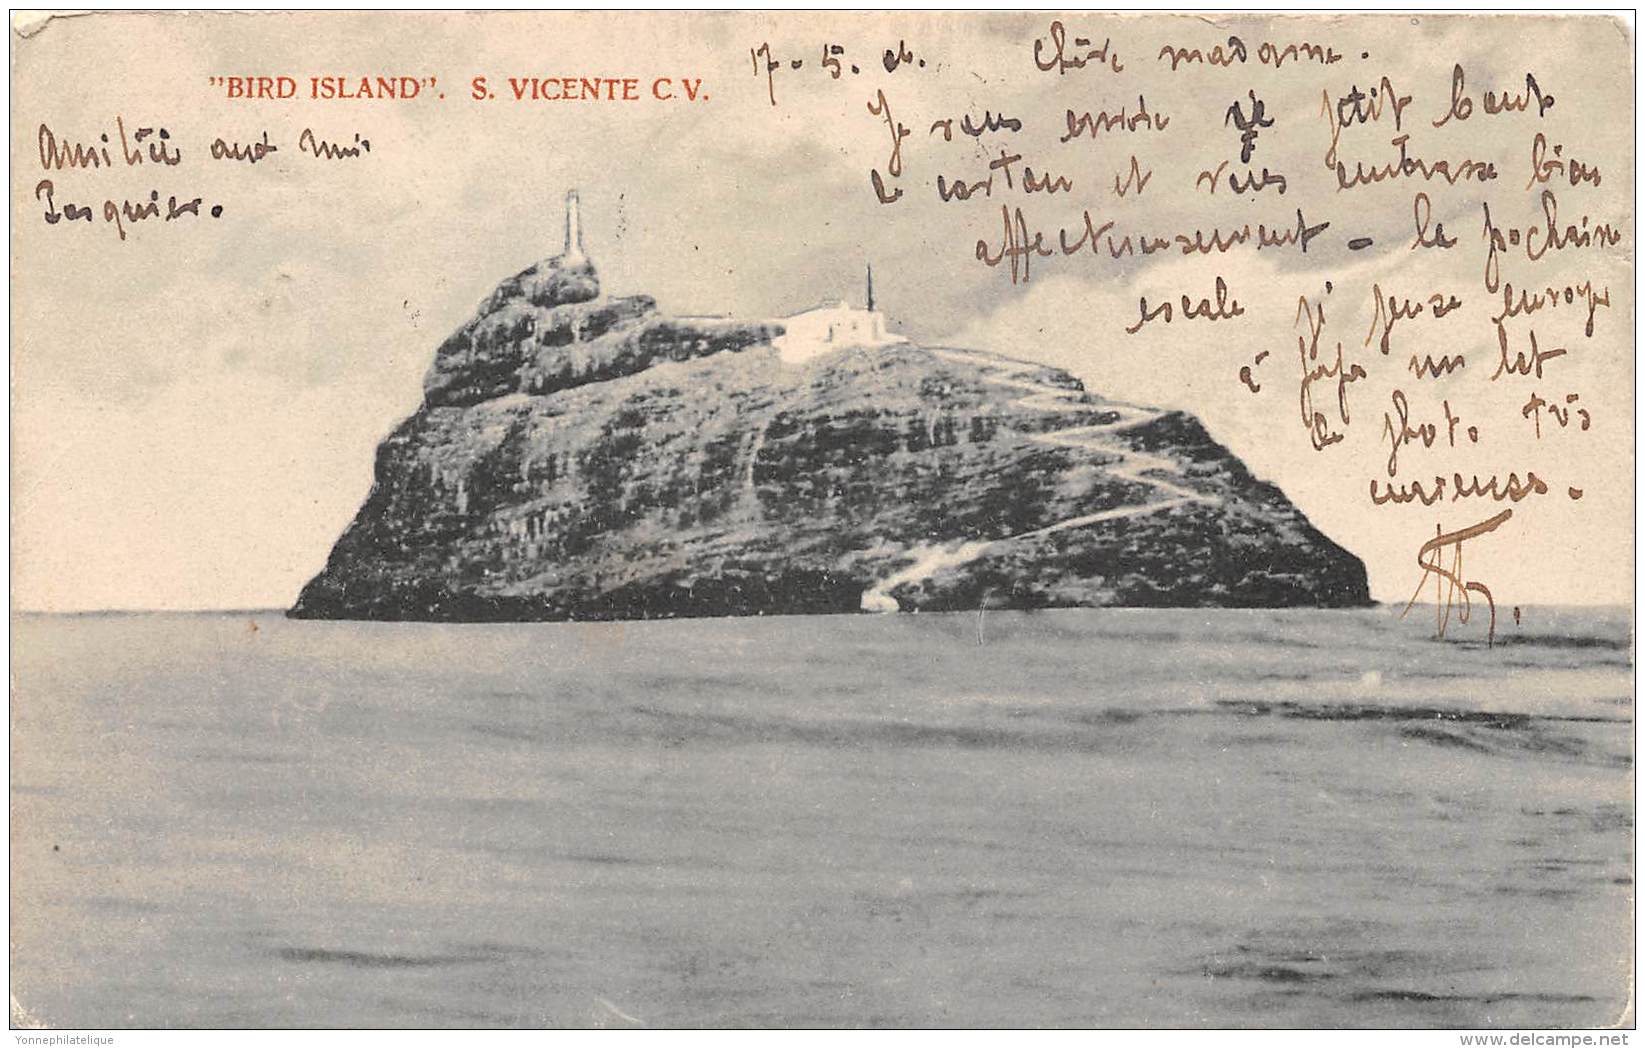 "BIRD ISLAND". S. VICENTE C.V.
17 - 5. 06. Chère madame.
Je vous envoie ce petit bout
de carton et vous embrasse bien
affectueusement - la prochaine
escale j'
envoyer
à papa un lot
de photo très
curieuses.
Amitiés aux
Pasquier.
Yonnephilatelique
www.delcampe.net